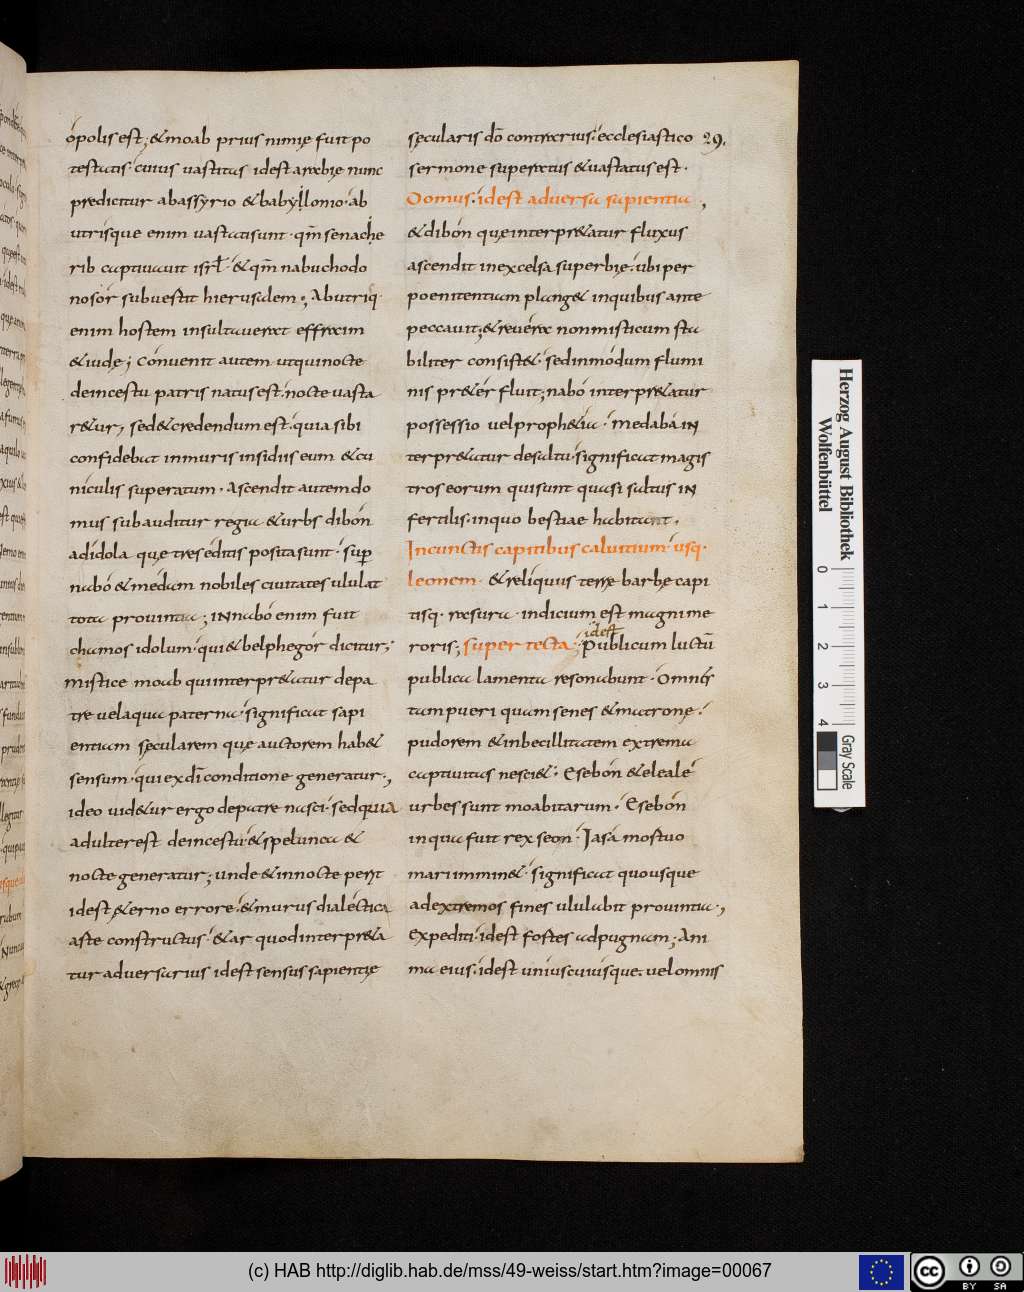 ópolis est; & moab prius nimię fuit po
testatis. cuius uastitas idest arabię nunc
predicitur ab assyrio & babyllonio. ab
utrisque enim uastati sunt. qm̄ senache
rib captiuauit isrl̄. & qm̄ nabuchodo
nosór subuertit hierusalem; Ab utriq.
enim hostem insultauerat effraim
& iudę; Conuenit autem ut qui nocte
de incestu patris natus est. nocte uasta
r&ur, sed & credendum est. quia sibi
confidebat in muris insidiis eum & cu
niculis superatum. Ascendit autem do
mus subauditur regia & urbs dibón
ad idola que tres éditis posita sunt. sup
nabó & médam nobiles ciuitates ululat
tota prouintia; IN nabó enim fuit
chamos idolum. qui & belphegór dicitur;
Mistice moab qui interpr&atur de pa
tre uel aqua paterna. significat sapi
entiam sęcularem quę auctorem hab&
sensum. qui ex dī conditione generatur;,
ideo uid&ur ergo de patre nasci. sed quia
adulter est de incestu. & spelunca &
nocte generatur; unde & in nocte perit
idest &erno errore. & murus dialéctica
aste constructus. & ar quod interpr&a
tur aduersarius idest sensus sapientię
sęcularis dō contrarius. ecclesiastico
29.
sermone superatus & uastatus est.
Domus. idest aduersa sapientia,
& dibón quę interpr&atur fluxus
ascendit in excelsa superbię. ubi per
poenitentiam plang& in quibus ante
peccauit; & reuéra non misticum sta
biliter consist&. sed in módum flumi
nis pr&ér fluit; nabó interpr&atur
possessio uel proph&ia. Medaba IN
terpr&atur de saltu. significat magis
tros eorum qui sunt quasi saltus IN
fertilis. in quo bestiae habitant.
In cunctis capitibus caluitium. usq.
leonem. & reliquus terrę barbę capi
tisq. rasura. indicium est magni me
roris; super tecta;
idest
Publicum luctū
publica lamenta resonabunt. Omnis
tam pueri quam senes & matronę.
pudorem & inbecillitatem extrema
captiuitas nesci&. Esebón & elealé
urbes sunt moabitarum. Esebón
in qua fuit rex seon. Iasá mostuo
mari immin&. significat quousque
ad extremos fines ululabit prouintia,
Expediti. idest fortes ad pugnam; Ani
ma eius. idest unius cuiusque. uel omnis
Herzog August Bibliothek
Wolfenbüttel
0 1 2 3 4
Gray Scale
(c) HAB http://diglib.hab.de/mss/49-weiss/start.htm?image=00067
cc BY SA